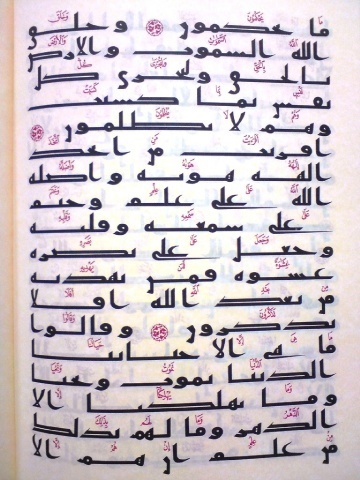 ما يحكمون وخلق
الله السموت والارض
بالحق ولتجزى كل
نفس بما كسبت
وهم لا يظلمون
افريت من اتخذ
الهه هويه واضله
الله على علم وختم
على سمعه وقلبه
وجعل على بصره
غشوه فمن يهديه
من بعد الله افلا
تذكرون وقالوا
ما هي الا حياتنا
الدنيا نموت ونحيا
وما يهلكنا الا
الدهر وما لهم بذلك
من علم ان هم الا